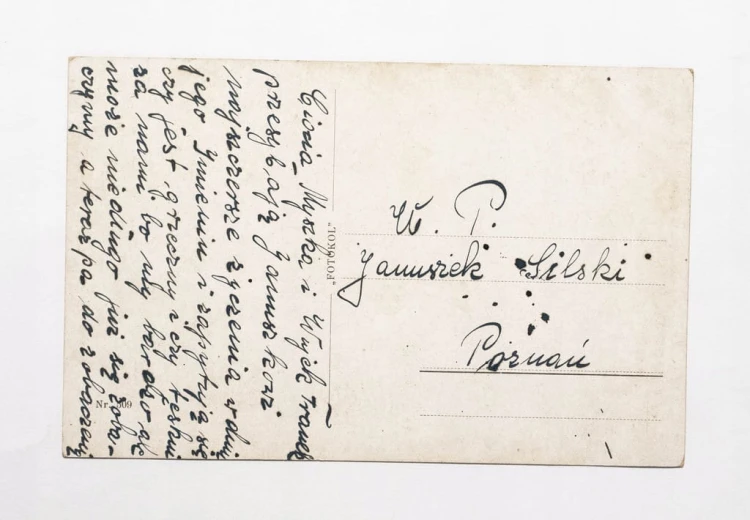 Ciocia Myszka i Wujek Franek
przesyłają Januszkowi
najszczersze życzenia w dniu
jego Imienin i zapytują się
czy jest grzeczny i czy teskni
za nami bo my bardzo ale
może niedługo już się zoba-
czymy a teraz pa do zobaczenia
"FOTOKOL"
Nr. 309
W. P.
Januszek Silski
Poznań